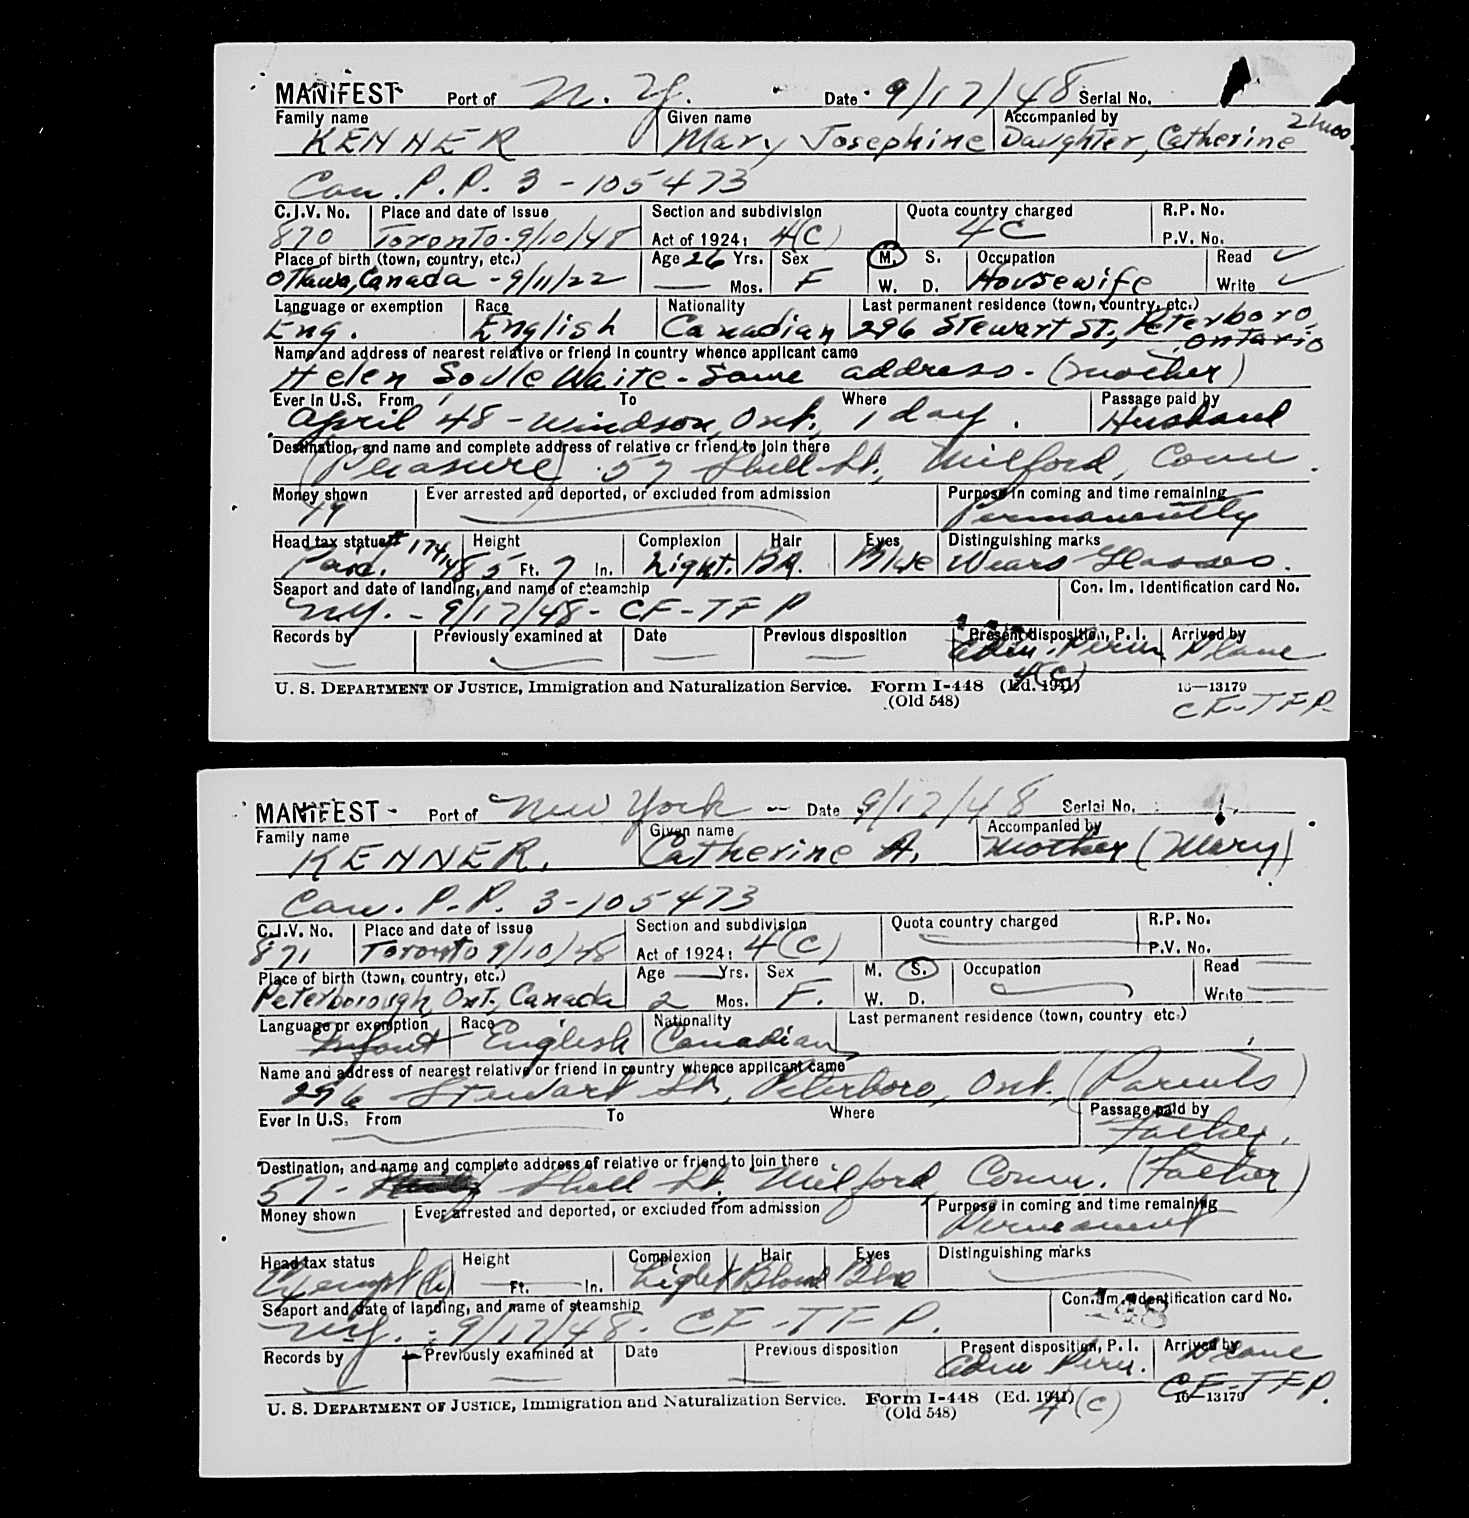 MANIFEST Port of N.Y. Date 9/17/48 Serial No.
Family name Given name Accompanied by
KENNER Mary Josephine Daughter, Catherine 2 mos.
Can. P.P. 3-105473
C.I.V. No. Place and date of issue Section and subdivision Quota country charged R.P. No.
870 Toronto-9/10/48 Act of 1924: 4(C) 4C P.V. No.
Place of birth (town, country, etc.) Age 26 Yrs. Sex M. S. Occupation Read ✓
Ottawa, Canada - 9/11/22 — Mos. F W. D. Housewife Write ✓
Language or exemption Race Nationality Last permanent residence (town, country, etc.)
Eng. English Canadian 296 Stewart St., Peterboro, Ontario
Name and address of nearest relative or friend in country whence applicant came
Helen Waite - Same address - (mother)
Ever in U.S. From To Where Passage paid by
April '48 - Windsor, Ont., 1 day. Husband
Destination, and name and complete address of relative or friend to join there
(Pleasure) 57 Shell St., Milford, Conn.
Money shown Ever arrested and deported, or excluded from admission Purpose in coming and time remaining
Permanently
Head tax status Height Complexion Hair Eyes Distinguishing marks
Paid. 5 Ft. 7 In. Light. BR. Blue Wears Glasses.
Seaport and date of landing, and name of steamship Con. Im. Identification card No.
N.Y. - 9/17/48 - CF-TFP
Records by Previously examined at Date Previous disposition Present disposition, P. I. Arrived by
Adm. Perm. 4(C) Plane
U. S. DEPARTMENT OF JUSTICE, Immigration and Naturalization Service. Form I-448 (Ed. 1941) 16—13179
(Old 548) CF-TFP
MANIFEST - Port of New York -- Date 9/17/48 Serial No.
Family name Given name Accompanied by
KENNER. Catherine A. Mother (Mary)
Can. P.P. 3-105473
C.I.V. No. Place and date of issue Section and subdivision Quota country charged R.P. No.
871 Toronto 9/10/48 Act of 1924: 4(C) P.V. No.
Place of birth (town, country, etc.) Age — Yrs. Sex M. S. Occupation Read
Peterborough, Ont., Canada 2 Mos. F. W. D. Write
Language or exemption Race Nationality Last permanent residence (town, country etc.)
Infant English Canadian
Name and address of nearest relative or friend in country whence applicant came
296 Stewart St., Peterboro, Ont., (Parents)
Ever in U.S. From To Where Passage paid by
Father.
Destination, and name and complete address of relative or friend to join there
57 - Shell St. Milford, Conn. (Father)
Money shown Ever arrested and deported, or excluded from admission Purpose in coming and time remaining
Permanent
Head tax status Height Complexion Hair Eyes Distinguishing marks
Exempt Ft. In. Light Blond Blue
Seaport and date of landing, and name of steamship Con. Im. Identification card No.
N.Y. - 9/17/48 - CF-TFP.
Records by Previously examined at Date Previous disposition Present disposition, P. I. Arrived by
Adm Perm. Plane
U. S. DEPARTMENT OF JUSTICE, Immigration and Naturalization Service. Form I-448 (Ed. 1941) 16—13179 CF-TFP.
(Old 548) 4(C)